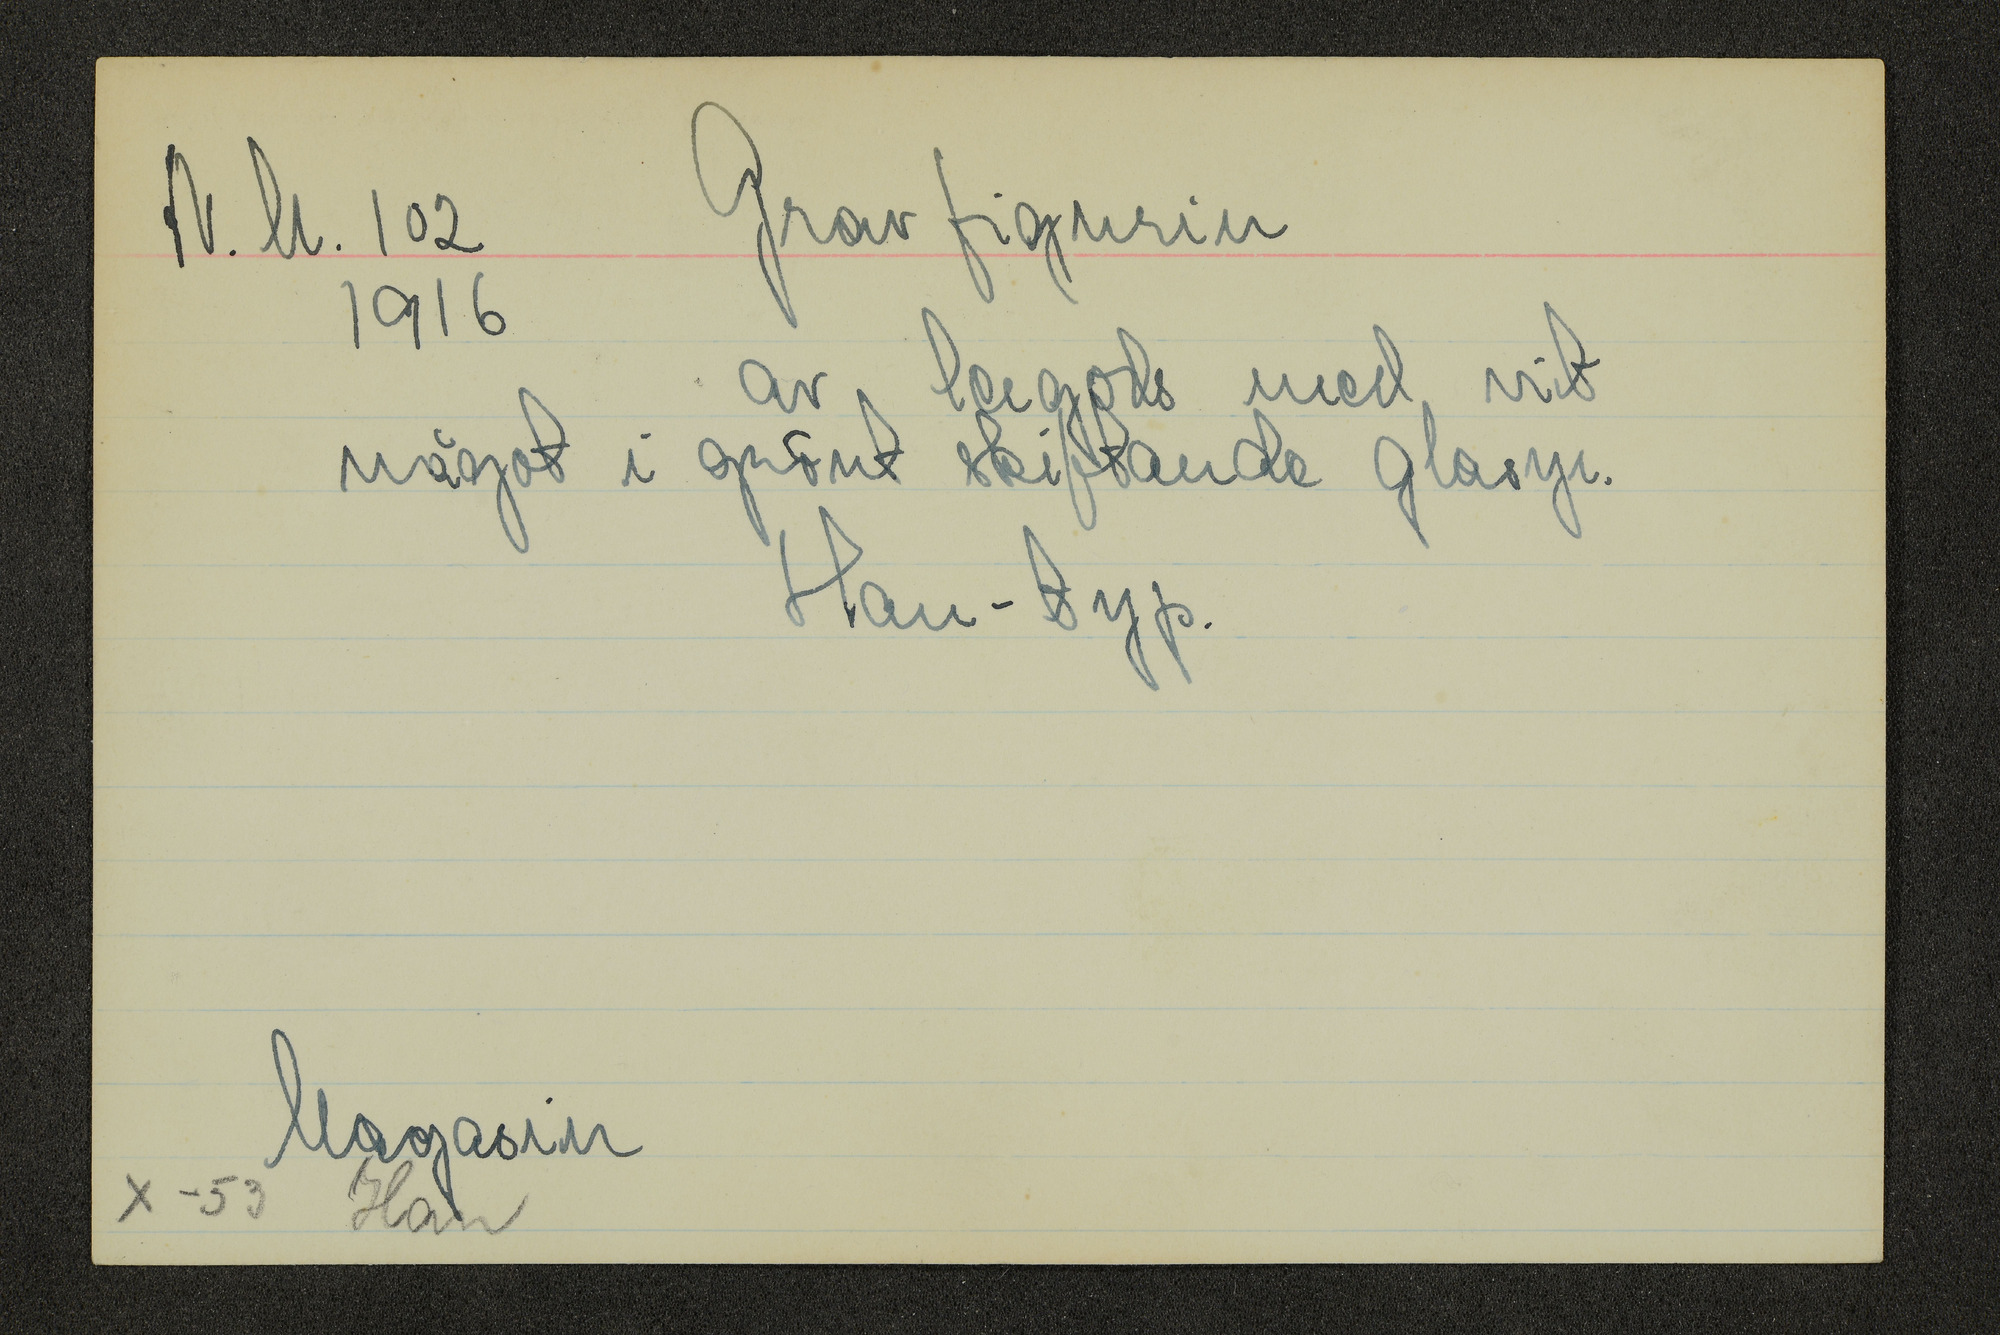 N.M. 102 Gravfigurin
1916
av lergods med vit
något i grönt skiftande glasyr.
Han-typ.
Magasin
X -53 Han